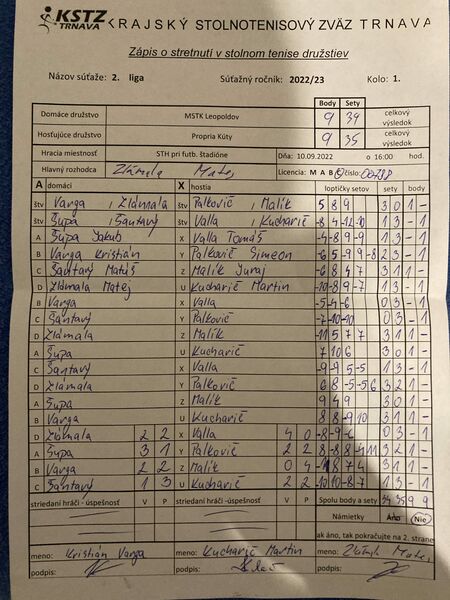 KSTZ TRNAVA KRAJSKÝ STOLNOTENISOVÝ ZVÄZ TRNAVA
Zápis o stretnutí v stolnom tenise družstiev
Názov súťaže: 2. liga Súťažný ročník: 2022/23 Kolo: 1.
Body Sety
Domáce družstvo MSTK Leopoldov 9 39 celkový výsledok
Hosťujúce družstvo Propria Kúty 9 35 celkový výsledok
Hracia miestnosť STH pri futb. štadióne Dňa: 10.09.2022 o 16:00 hod.
Hlavný rozhodca Zlámala Matej Licencia: M A B C číslo:
A domáci X hostia loptičky setov sety body
štv Varga , Zlámala štv Palkovič , Malík 5 8 9 3 0 1 -
štv Šúpa , Šantavý štv Valla , Kucharič -8 4 -12 -10 1 3 - 1
A Šúpa Jakub X Valla Tomáš -4 -8 9 -9 1 3 - 1
B Varga Kristián Y Palkovič Simeon -6 5 -9 9 -8 2 3 - 1
C Šantavý Matúš Z Malík Juraj -6 8 4 7 3 1 1 -
D Zlámala Matej U Kucharič Martin -10 -8 9 -7 1 3 - 1
B Varga X Valla -5 -4 -6 0 3 - 1
C Šantavý Y Palkovič -7 -10 -10 0 3 - 1
D Zlámala Z Malík -11 5 7 7 3 1 1 -
A Šúpa U Kucharič 7 10 6 3 0 1 -
C Šantavý X Valla -9 -9 5 -5 1 3 - 1
D Zlámala Y Palkovič 6 8 -5 -5 6 3 2 1 -
A Šúpa Z Malík 9 4 9 3 0 1 -
B Varga U Kucharič 8 8 -9 10 3 1 1 -
D Zlámala 2 2 X Valla 4 0 -8 -9 -6 0 3 - 1
A Šúpa 3 1 Y Palkovič 2 2 8 -8 8 11 3 2 1 -
B Varga 2 2 Z Malík 0 4 8 7 4 3 1 1 -
C Šantavý 1 3 U Kucharič 2 2 -10 10 -8 -7 1 3 - 1
striedaní hráči -úspešnosť V P striedaní hráči -úspešnosť V P Spolu body a sety 35 9 9
Námietky Áno Nie
ak áno, tak pokračujte na 2. strane
meno: Kristián Varga meno: Kucharič Martin meno: Matej
podpis: podpis: podpis: